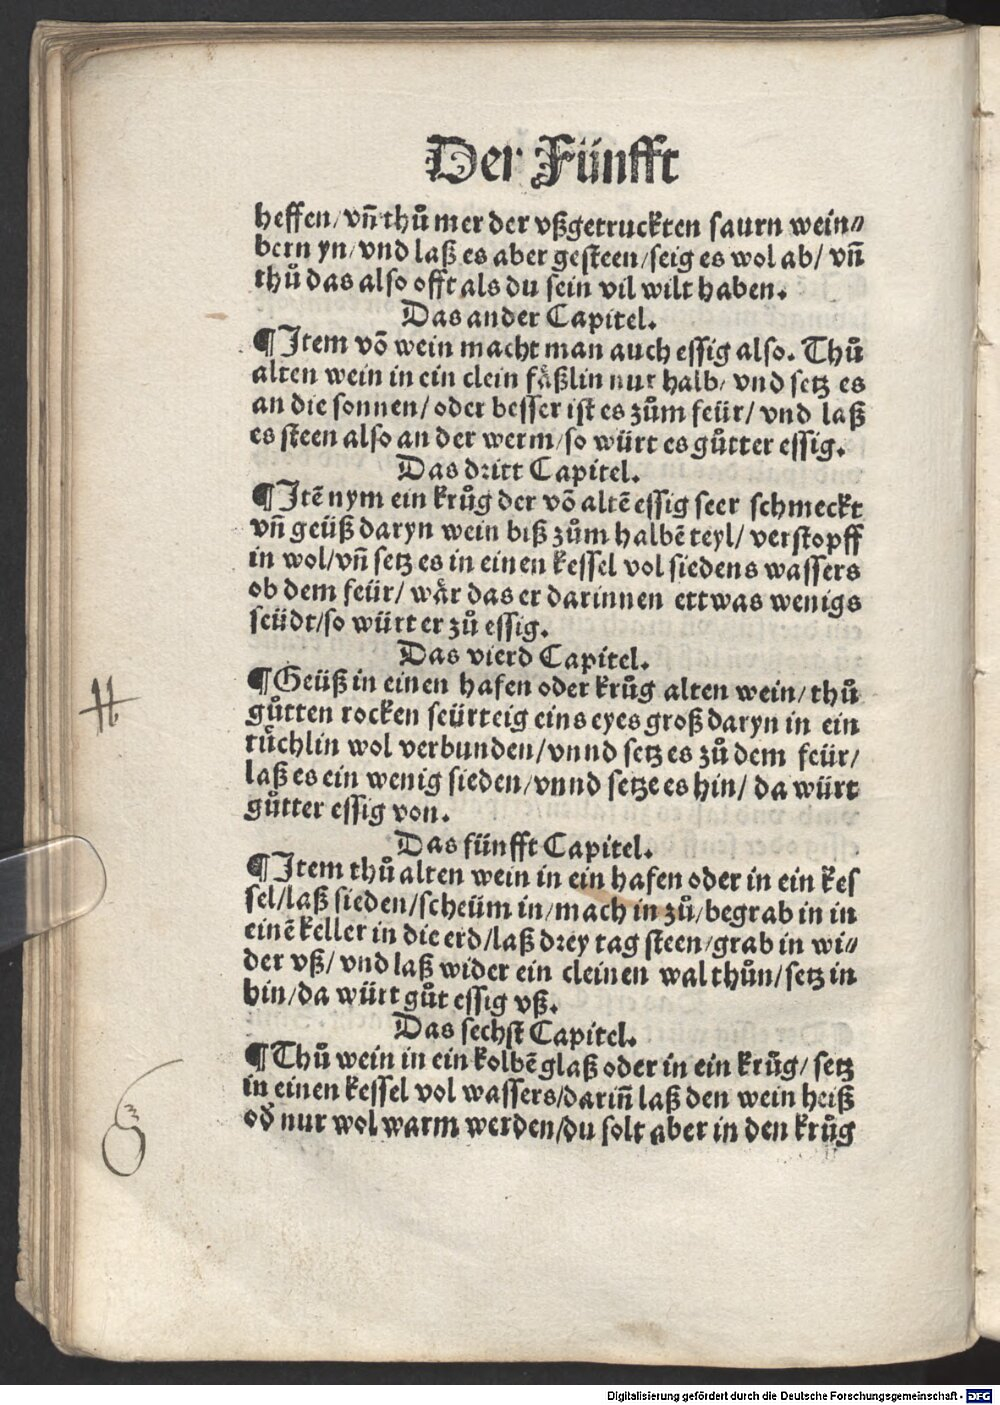 Der Fünfft
heffen/ vñ thů mer der vßgetruckten saurn wein⸗
bern yn/ vnd laß es aber gesteen/ seig es wol ab/ vñ
thů das also offt als du sein vil wilt haben.
Das ander Capitel.
¶ Item võ wein macht man auch essig also. Thů
alten wein in ein clein fåßlin nur halb/ vnd setz es
an die sonnen/ oder besser ist es zům feür/ vnd laß
es steen also an der werm/ so würt es gůtter essig.
Das dritt Capitel.
¶ Itẽ nym ein krůg der võ altẽ essig seer schmeckt
vñ geüß daryn wein biß zům halbẽ teyl/ verstopff
in wol/ vñ setz es in einen kessel vol siedens wassers
ob dem feür/ wår das er darinnen ettwas wenigs
seüdt/ so würt er zů essig.
Das vierd Capitel.
¶ Geüß in einen hafen oder krůg alten wein/ thů
gůtten rocken seürteig eins eyes groß daryn in ein
tüchlin wol verbunden/ vnnd setz es zů dem feür/
laß es ein wenig sieden/ vnnd setze es hin/ da würt
gůtter essig von.
Das fünfft Capitel.
¶ Item thů alten wein in ein hafen oder in ein kes
sel/ laß sieden/ scheüm in/ mach in zů/ begrab in in
einẽ keller in die erd/ laß drey tag steen/ grab in wi⸗
der vß/ vnd laß wider ein cleinen wal thůn/ setz in
hin/ da würt gůt essig vß.
Das sechst Capitel.
¶ Thů wein in ein kolbẽ glaß oder in ein krůg/ setz
in einen kessel vol wassers/ dariñ laß den wein heiß
od̃ nur wol warm werden/ du solt aber in den krůg
Digitalisierung gefördert durch die Deutsche Forschungsgemeinschaft - DFG